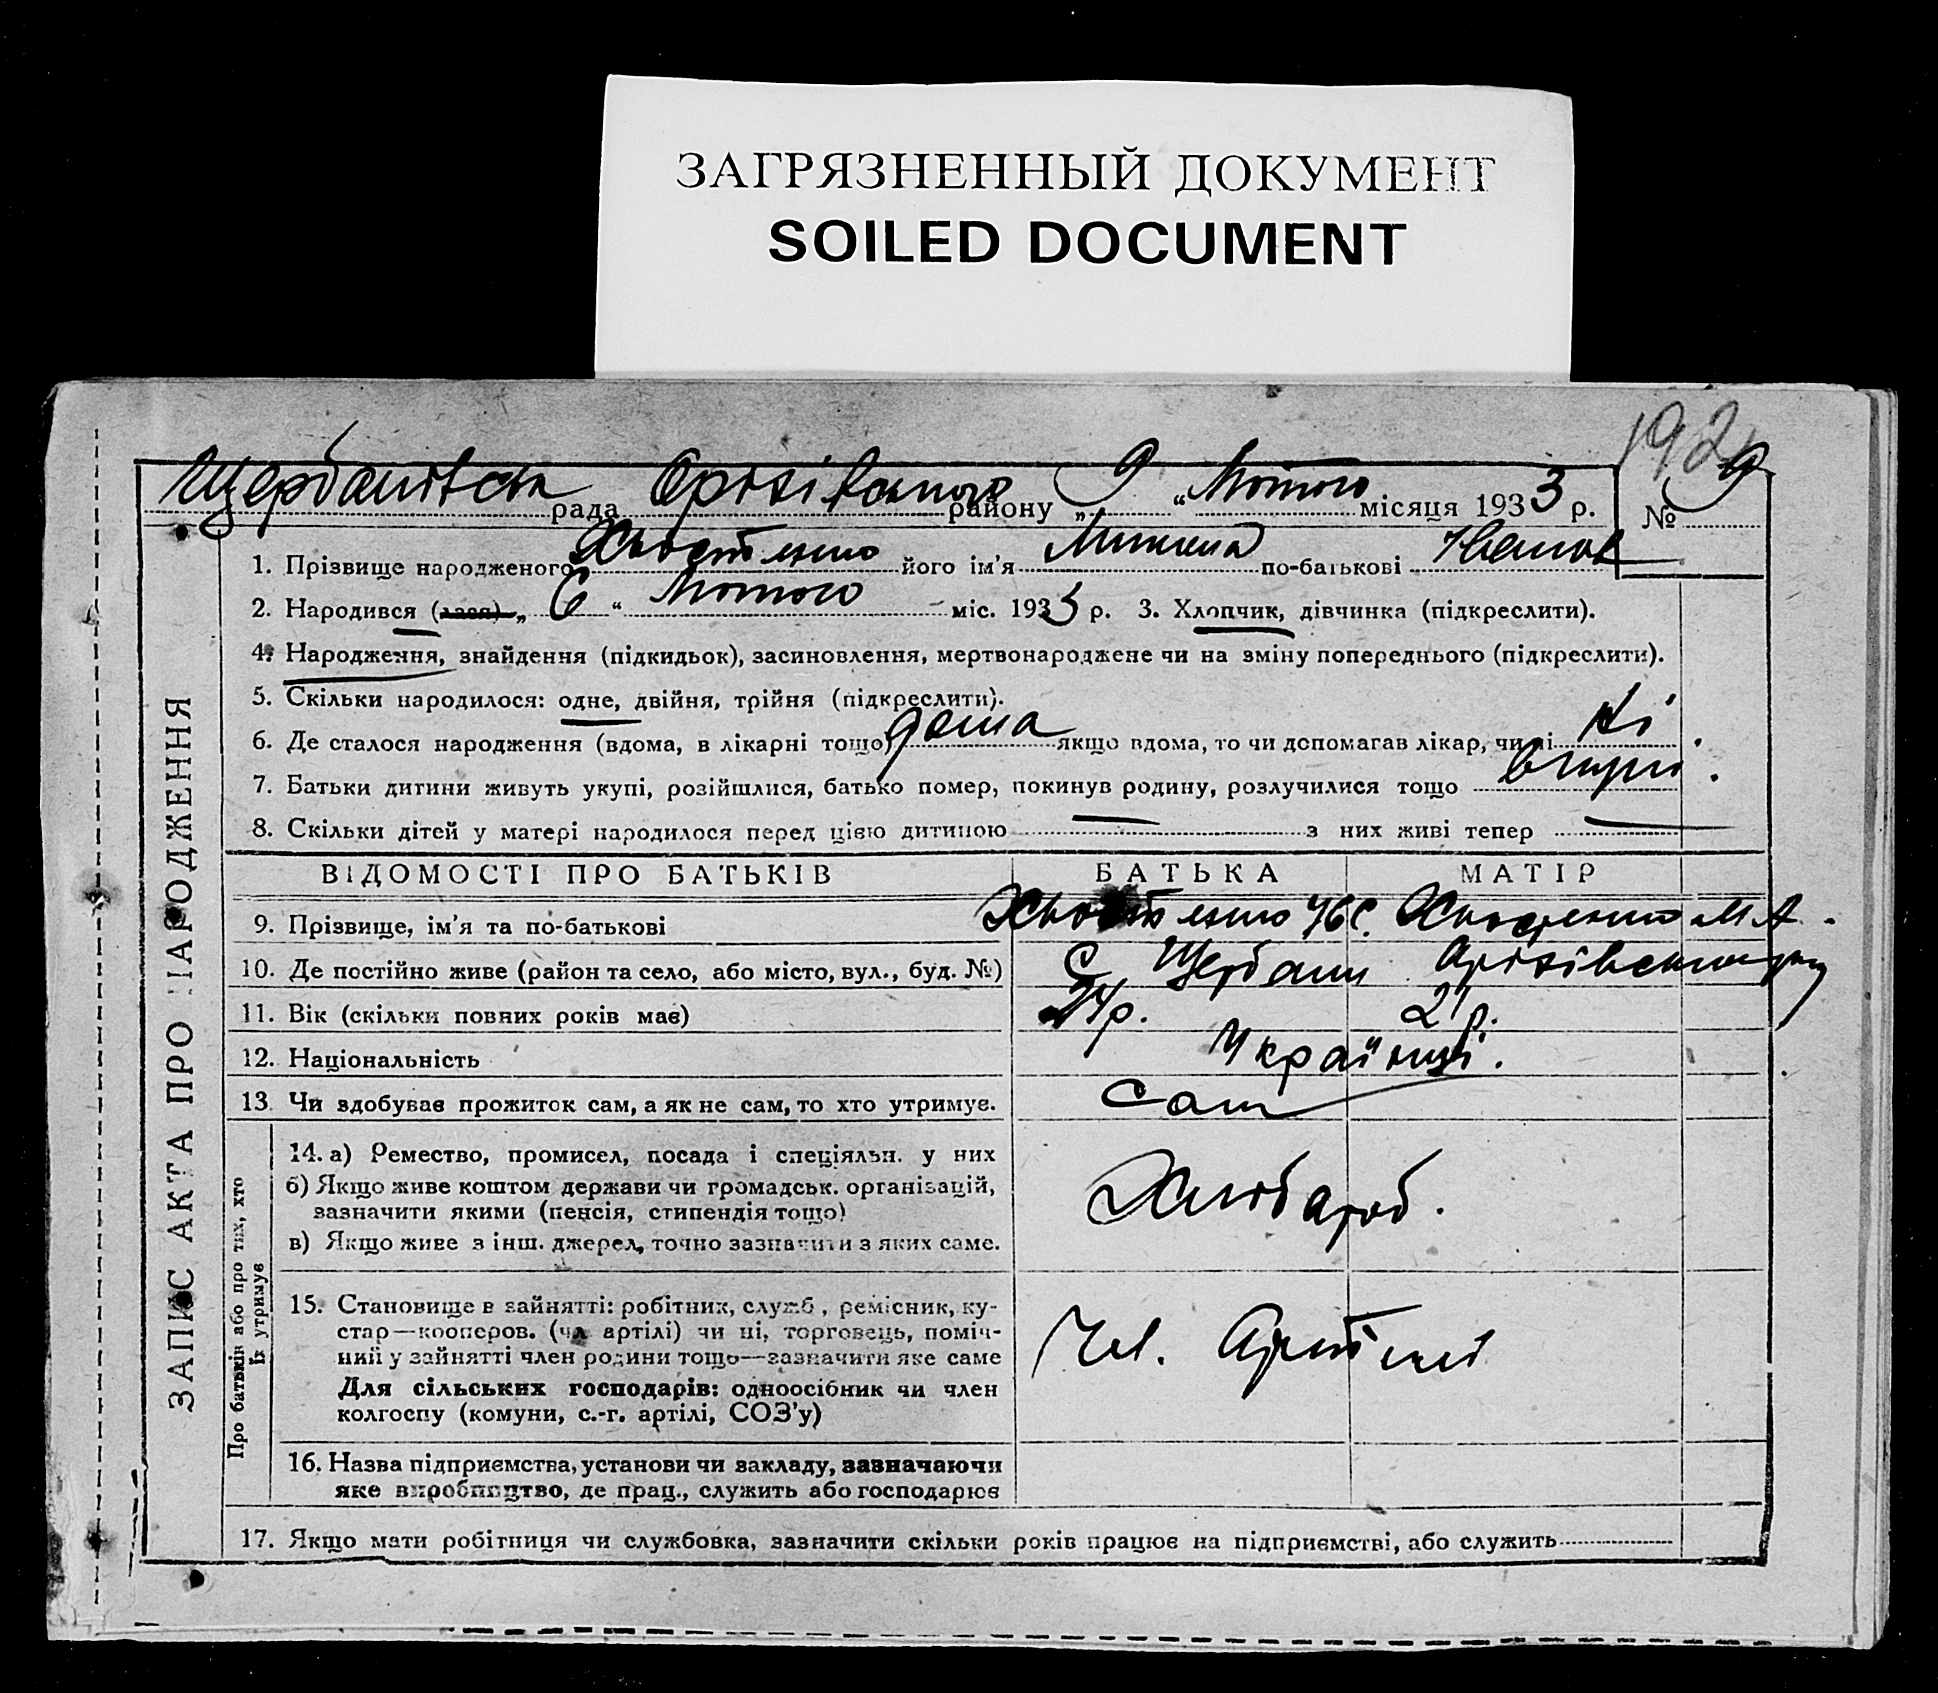 ЗАГРЯЗНЕННЫЙ ДОКУМЕНТ
SOILED DOCUMENT
192
Щербанівськ рада Орізівського району „ 9 “ Лютого місяця 1933 р. № 9
1. Прізвище народженого його ім'я Микола по-батькові Іванов
2. Народився (лася) „ 6 “ Лютого міс. 1933 р. 3. Хлопчик, дівчинка (підкреслити).
4. Народження, знайдення (підкидьок), засиновлення, мертвонароджене чи на зміну попереднього (підкреслити).
5. Скільки народилося: одне, двійня, трійня (підкреслити).
6. Де сталося народження (вдома, в лікарні тощо) дома якщо вдома, то чи допомагав лікар, чи ні ні.
7. Батьки дитини живуть укупі, розійшлися, батько помер, покинув родину, розлучилися тощо вкупі.
8. Скільки дітей у матері народилося перед цією дитиною — з них живі тепер —
ЗАПИС АКТА ПРО НАРОДЖЕННЯ
ВІДОМОСТІ ПРО БАТЬКІВ БАТЬКА МАТІР
9. Прізвище, ім'я та по-батькові
10. Де постійно живе (район та село, або місто, вул., буд. №) С. Щербани
11. Вік (скільки повних років має) 24 р. 21 р.
12. Національність Українці.
13. Чи здобуває прожиток сам, а як не сам, то хто утримує. Сам
Про батьків або про тих, хто їх утримує
14. а) Ремество, промисел, посада і спеціяльн. у них
б) Якщо живе коштом держави чи громадськ. організацій,
зазначити якими (пенсія, стипендія тощо)
в) Якщо живе з інш. джерел, точно зазначити з яких саме.
Хлібороб.
15. Становище в зайнятті: робітник, служб., ремісник, ку-
стар—кооперов. (чл. артілі) чи ні, торговець, поміч-
ний у зайнятті член родини тощо—зазначити яке саме
Для сільських господарів: одноосібник чи член
колгоспу (комуни, с.-г. артілі, СОЗ'у)
Чл. Артілі
16. Назва підприємства, установи чи закладу, зазначаючи
яке виробництво, де прац., служить або господарює
17. Якщо мати робітниця чи службовка, зазначити скільки років працює на підприємстві, або служить